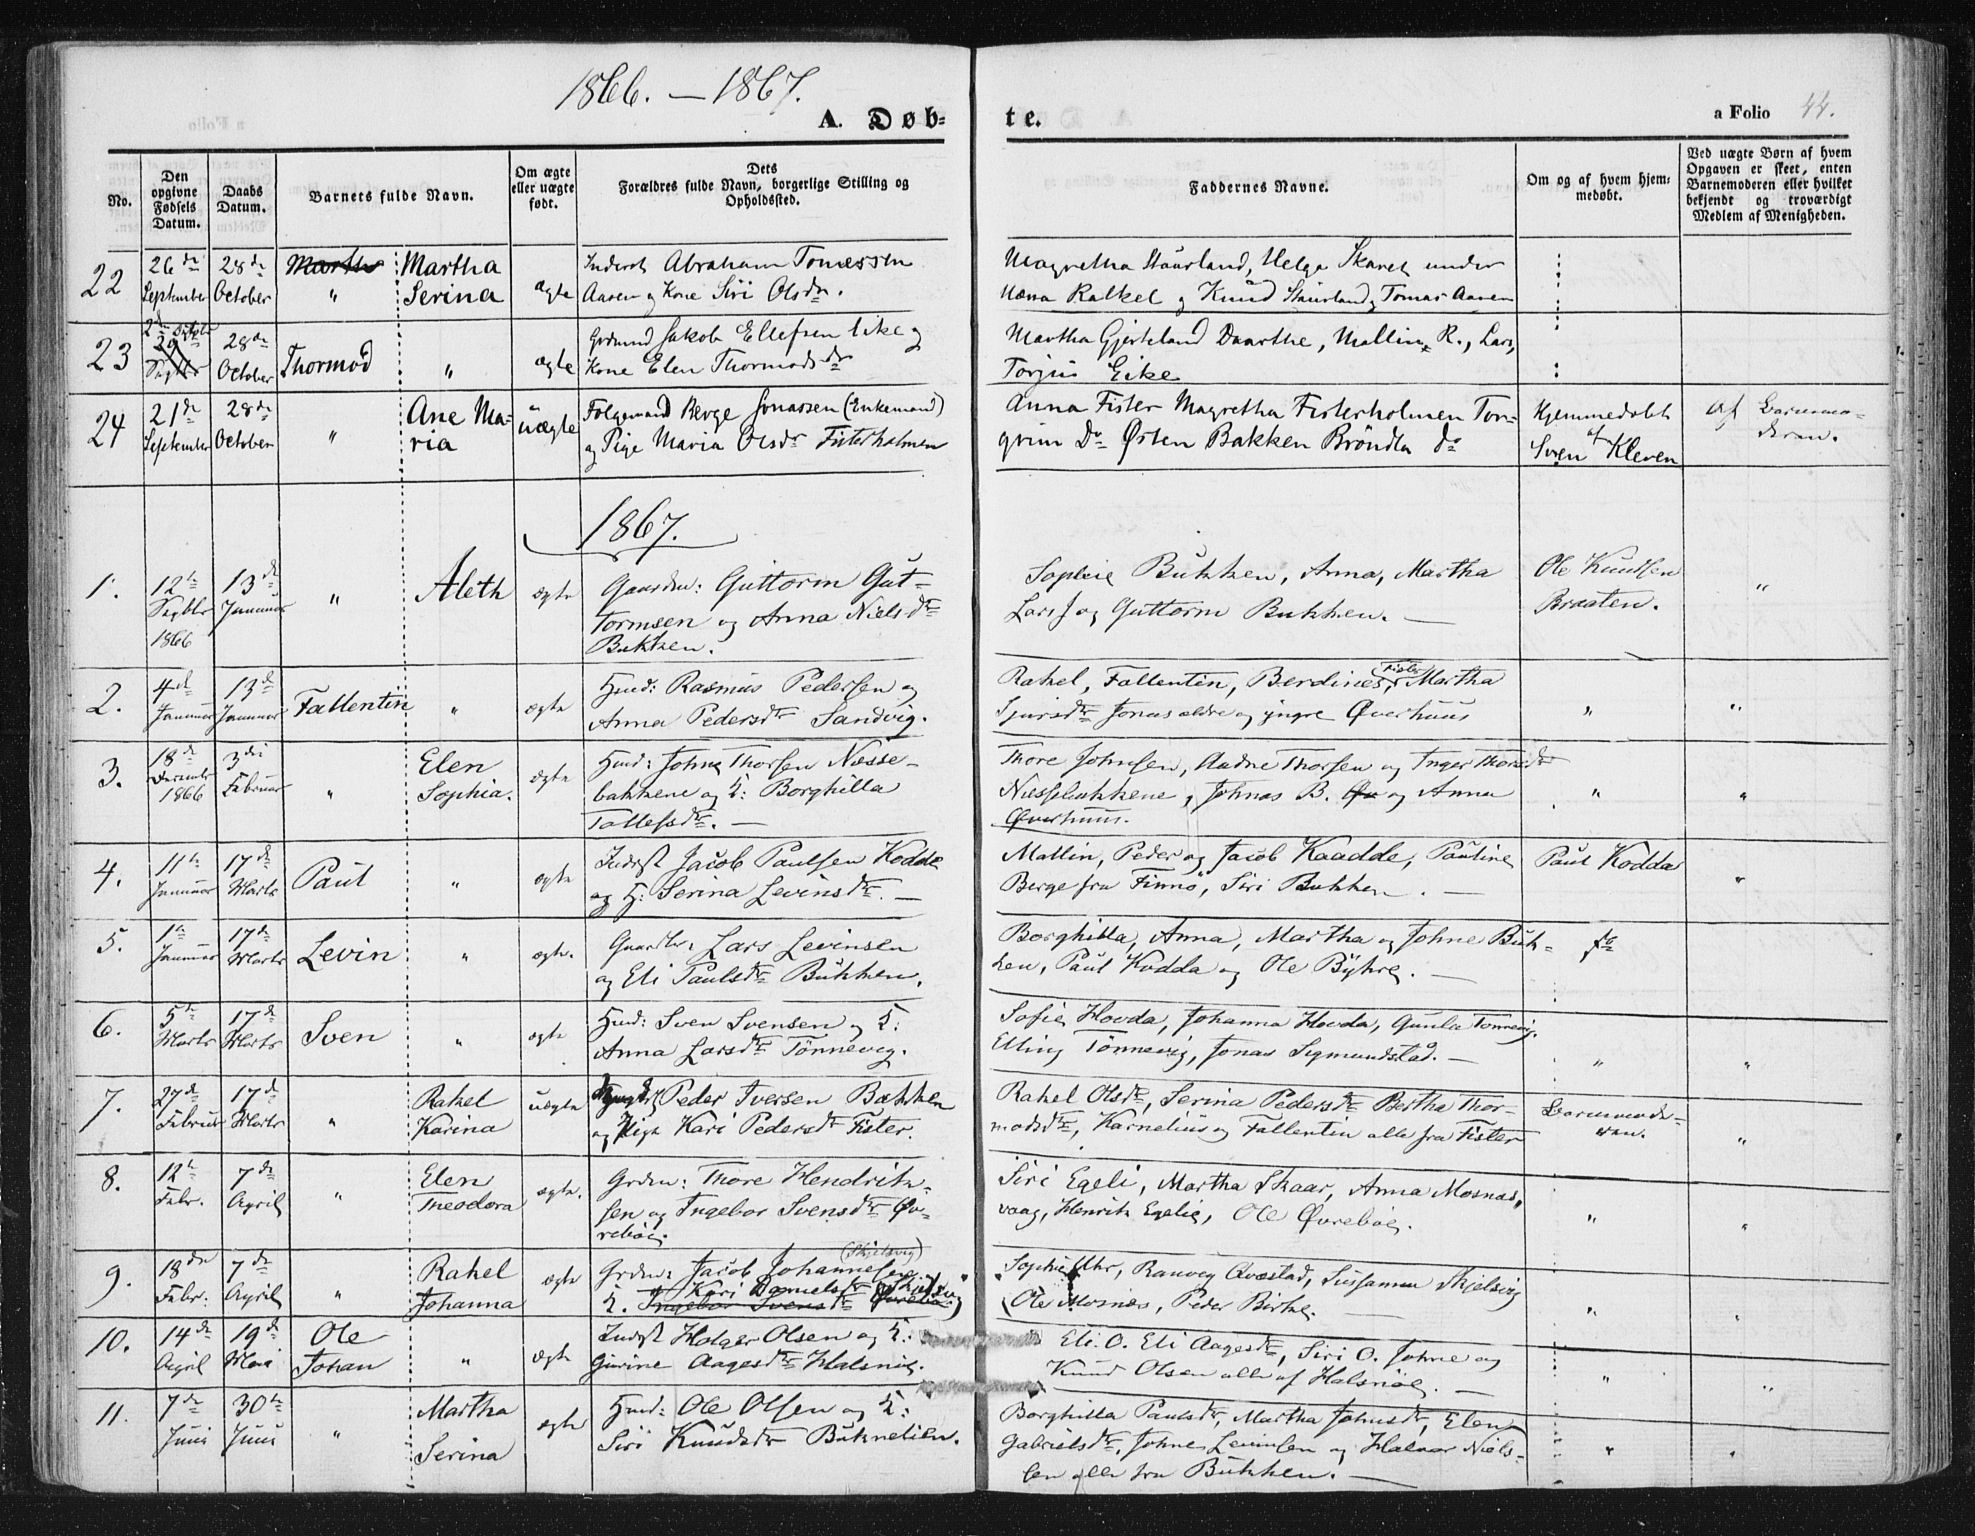 1866. — 1867.
A. Døb-
te.
a Folio 44.
No.
Den opgivne Fødsels Datum.
Daabs Datum.
Barnets fulde Navn.
Om ægte eller uægte født.
Dets Forældres fulde Navn, borgerlige Stilling og Opholdssted.
Faddernes Navne.
Om og af hvem hjemmedøbt.
Ved uægte Børn af hvem Opgaven er skeet, enten Barnemoderen eller hvilket bekjendt og troværdigt Medlem af Menigheden.
22 26de September 28de October Martha Serina ægte
Inderst Abraham Tomessen
Aasen og Kone Siri Olsdr.
Magretha Staurland, Helga Skaret
Ralkel og Knud Staurland, Tomas Aasen
23 28de October Thormod " ægte
Jakob Ellefsen Eike og
Kone Elen Thormodsdr
Martha Gjerteland Daarthe, Mallin R., Lars,
Torjus Eike
24 21de September 28de October " Ane Maria uægte
Følgemand Berge Jonassen (Enkemand)
og Pige Maria Olsdr Fisterholmen
Anna Fister Magretha Fisterholmen Tor-
grim Do Østen Bakken Brøndla do
Hjemmedøbt
af
Sven Kleven
af Barnemo-
deren.
1867.
1. 12te 1866 13de Januar " Aleth ægte
Gaardm: Guttorm Gut-
tormsen og Anna Nielsdtr
Bukken.
Sophie Bukken, Anna, Martha
Lars J og Guttorm Bukken. —
Ole Knudsen
Braaten.
"
2. 4de Januar 13de Januar Fallentin " ægte
Hmd: Rasmus Pedersen og
Anna Pedersdtr Sandvig.
Rakel, Fallentin, Berdines, Fister Martha
Sjursdtr Jonas ældre og yngre Øverhuus
"
"
3. 18de December 1866 3die Februar " Elen Sophia. ægte
Hmd: Johna Thorsen Nesse-
bakkene og K: Borghilla
Tollefsdtr. —
Thore Johnsen, Aadne Thorsen og Inger Thorsdtr
Nessebakkene, Johnas B. og Anna
Øverhuus.
"
"
4. 11te Januar 17de Marts Paul " ægte
Inderst Jacob Paulsen Kodda
og H: Serina Levinsdtr. —
Mallin, Peder og Jacob Kaadde, Pauline
Berge fra Finnø, Siri Bukken. —
Paul Kodda
"
5. 1te Januar 17de Marts Levin " ægte.
Gaardbr: Lars Levinsen
og Eli Paulsdtr Bukken.
Borghilla, Anna, Martha og Johne Buk-
ken, Paul Kodda og Ole Bykle. —
do
6. 5te Marts 17de Marts Sven " ægte
Hmd: Sven Svensen og K:
Anna Larsdtr Tönnevig.
Sofie Hovda, Johanna Hovda, Gunla Tönnevig.
Elling Tönnevig, Jonas Sigmundstad. —
"
"
7. 27de Februar 17de Marts " Rakel Karina uægte
Peder Iversen Bækken
og Pige Kari Pedersdtr Fister.
Rakel Olsdtr, Serina Pedersdtr Bertha Thor-
modsdtr, Karnelius og Fallentin alle fra Fister
Barnemode-
ren.
"
8. 12te Febr. 7de April " Elen Theodora ægte.
Grdm: Thore Hendrik-
sen og Ingebor Svensdtr Øv-
rebøe.
Siri Egeli, Martha Skaar, Anna Mosnas,
vaag, Henrik Egelie, Ole Øvrebøe.
"
"
9. 18de Febr: 7de April " Rakel Johanna ægte
(Skjelsvig)
Grdm: Jacob Johannesen
Kari Danielsdtr Skjelsvig
K. Ingebor Svensdtr Øvrebø
Sophie Uhr, Ranveg Qvæstad, Sussanna Skjelsvig
Ole Mosnes, Peder Birke. —
"
"
10. 14de April 19de Mai Ole Johan " ægte
Inderst Holger Olsen og K:
Gurine Aagesdtr Halsnøe.
Eli O. Eli Aagesdtr, Siri O. Johne og
Knud Olsen alle af Halsnøe. —
"
"
11. 7de Juni 30te Juni " Martha Serina ægte
Hmd: Ole Olsen og K:
Siri Knudsdtr Buknelien.
Borghilla Paulsdtr, Martha Johnsdtr, Elen
Gabrielsdtr, Johne Levinsen og Halvor Niels-
sen alle fra Bukken. —
"
"